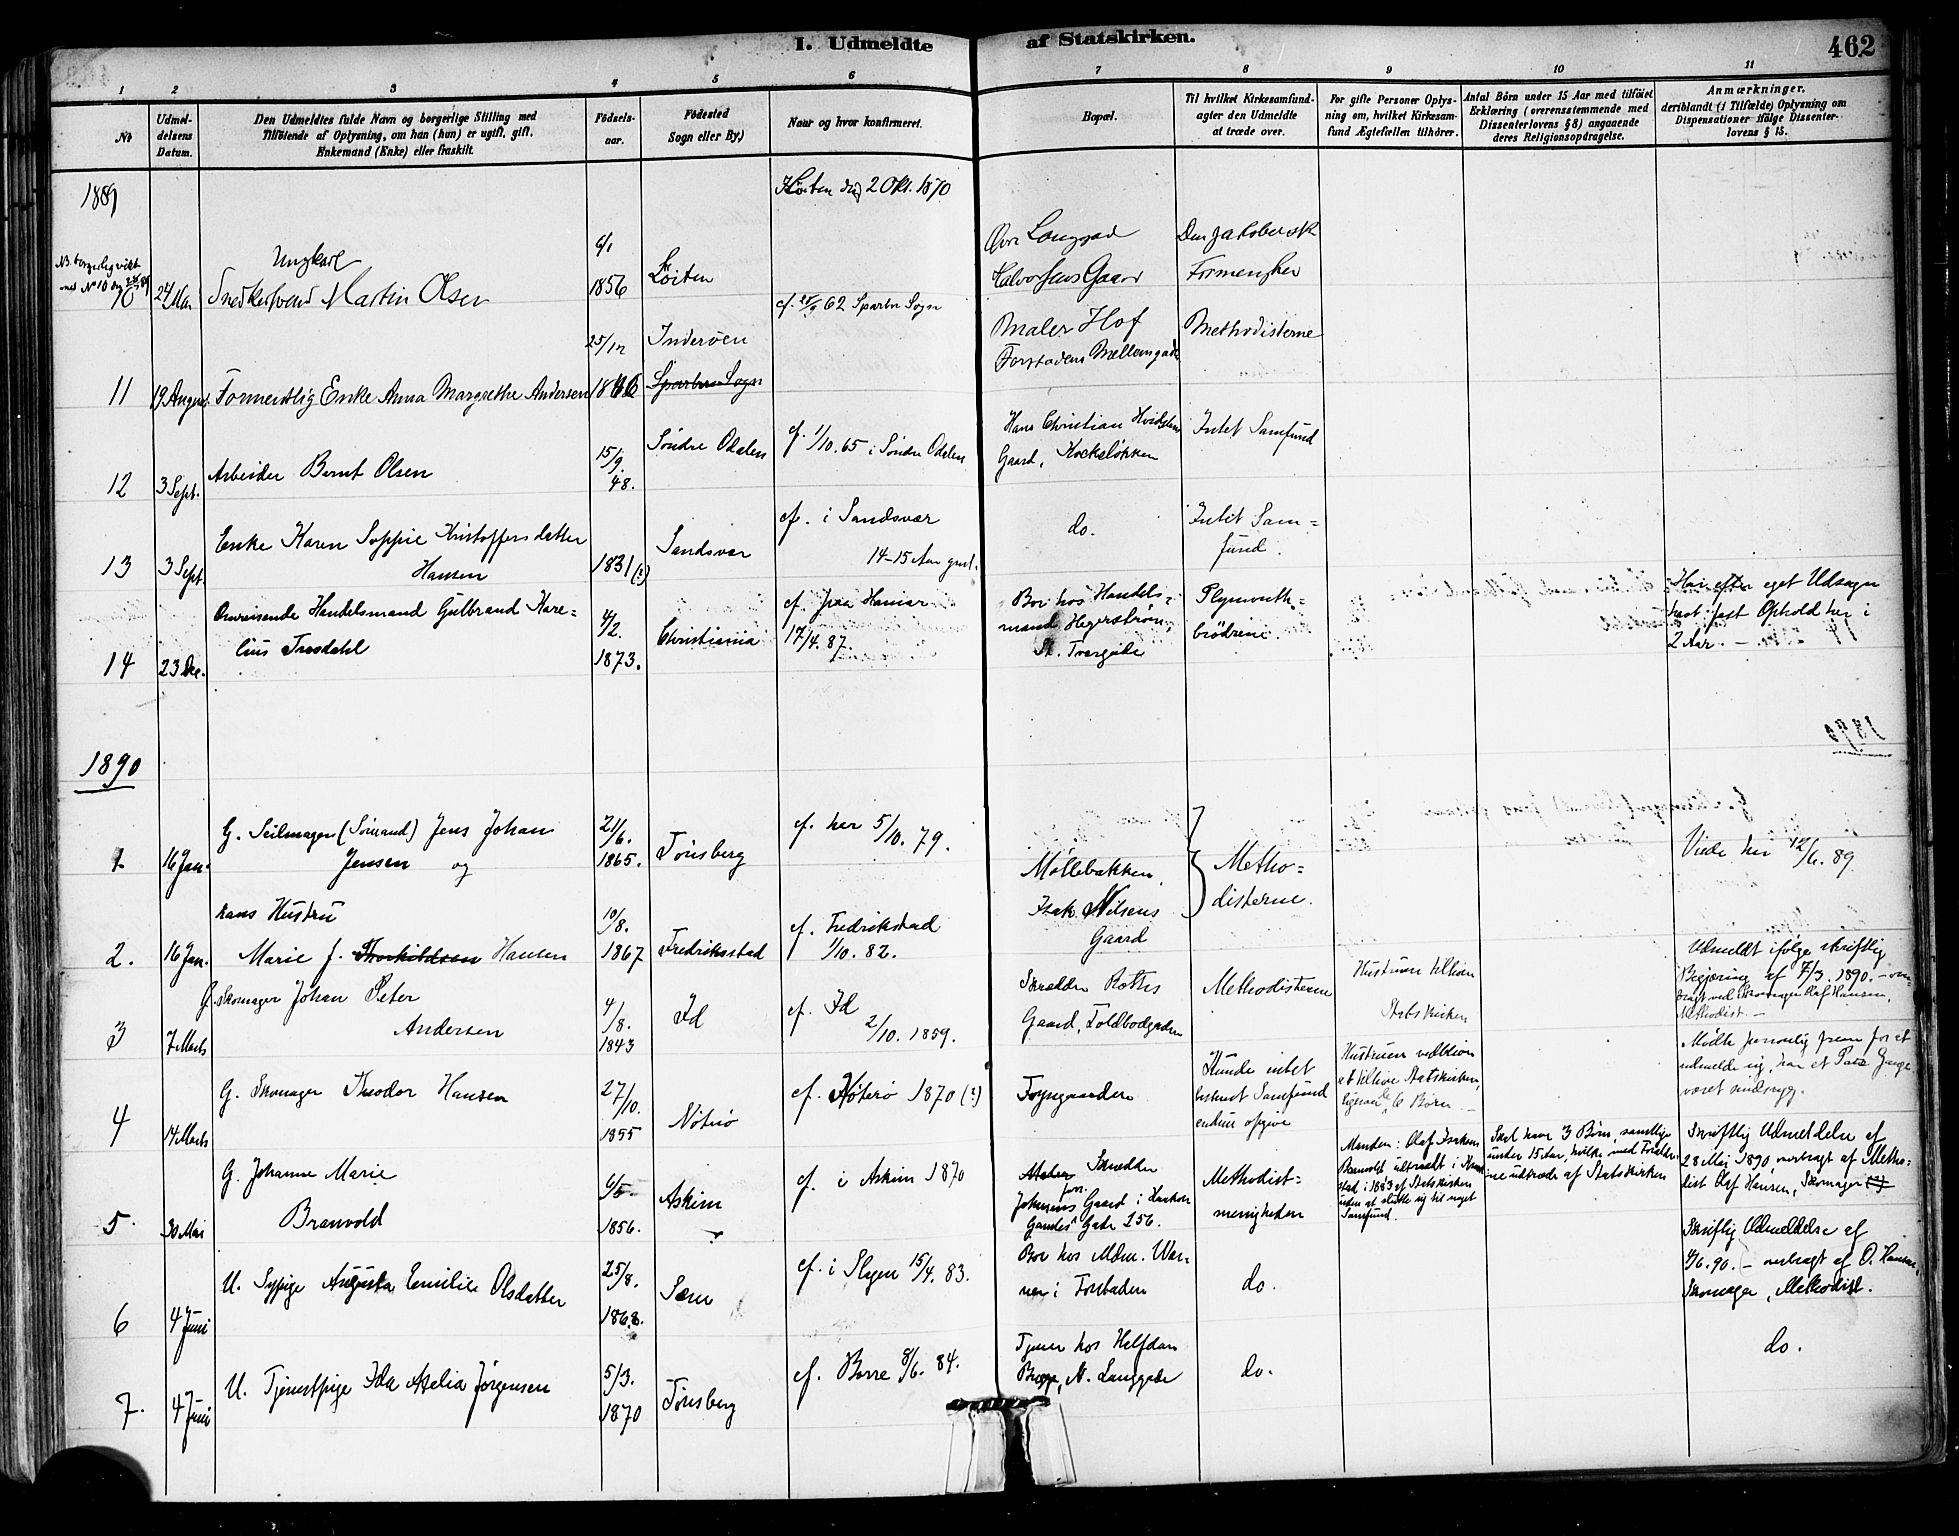 I. Udmeldte af Statskirken.
462
1 2 3 4 5 6 7 8 9 10 11
No
Udmel-
delsens
Datum.
Den Udmeldtes fulde Navn og borgerlige Stilling med
Tilföiende af Oplysning, om han (hun) er ugift, gift,
Enkemand (Enke) eller fraskilt.
Födsels-
aar.
Födested
Sogn eller By.)
Naar og hvor konfirmeret.
Bopæl.
Til hvilket Kirkesamfund-
agter den Udmeldte
at træde over.
For gifte Personer Oplys-
ning om, hvilket Kirkesam-
fund Ægtefællen tilhörer.
Antal Börn under 15 Aar med tilföiet
Erklæring (overensstemmende med
Dissenterlovens § 8) angaaende
deres Religionsopdragelse.
Anmærkninger.
deriblandt (i Tilfælde) Oplysning om
Dispensationer ifölge Dissenter-
lovens § 15.
1889
NB. borgerlig viet
med No 10
10
24 Mai
Ungkarl
Snedkersvend Martin Olsen
6/1
1856
Löiten
Löiten 2 Okt. 1870
Övre Langgad
Halvorsens Gaard
Den Jakobersk
Formening her
11
19 August
Formentlig Enke Anna Margrethe Andersen
25/12
1846
Inderöen
Sparbu Sogn
cf. 28/9 62 Sparbu Sogn
Maler Hof
Forstadens Mellemgade
Methodisterne
12
3 Sept.
Arbeider Bernt Olsen
15/9.
48.
Söndre Odalen
cf. 1/10. 65 i Söndre Odalen
Hans Christian Hvidstens
Gaard, Kokeløkken
Intet Samfund
13
3 Sept.
Enke Karen Soppie Kristoffersdatter
Hansen
1831 (?)
Sandsvær
cf. i Sandsvær
14-15 Aar gml.
do.
Intet Sam=
fund.
14
23 Dec.
Omreisende Handelsmand Gulbrand Kare=
lius Trosdahl
4/2.
1873.
Christiania
cf. paa Hamar
17/4. 87.
Bor hos Handels=
mand Hegerstrøm,
St. Tvergade
Plymouth=
brödrene.
Har efter eget Udsagn
havt fast Ophold her i
2 Aar. —
1890
1
16 Jan.
G. Seilmager (Sömand) Jens Johan
Jensen og
21/6.
1865.
Tönsberg
cf. her 5/10. 79.
Møllebakken,
Isak Nilsens
Gaard
Metho=
disterne.
Viede her 12/6. 89
2.
16 Jan.
hans Hustru
Marie f. Thorkildsen Hansen
10/8.
1867
Fredriksstad
cf. Fredrikstad
1/10. 82.
3
7 Marts
G. Skomager Johan Peter
Andersen
4/8.
1843
Id
cf. Id
2/10. 1859.
Skrædder Roths
Gaard, Toldbodgaden
Methodisterne
Hustruen tilhörer
Statskirken
Udmeldt ifølge skriftlig
Begjæring af 7/3. 1890. — over-
bragt ved Skomager Olaf Hansen,
Methodist. —
4
14 Marts
G. Skomager Theodor Hansen
27/10.
1855
Nöterö
cf. Nøterø 1870 (?)
Foyngaarden
Kunde intet
bestemt Samfund
endnu opgive
Hustruen vedbliver
at tilhöre Statskirken,
ligesaa de 6 Børn —
Mødte personlig frem for at
udmelde sig, har et Par Gange
været
5
30 Mai
G. Johanne Marie
Branvold
6/5.
1856.
Askim
cf. i Askim 1870
Skrædder
Johnsens Gaard i Haakon
Gamles Gade 256.
Methodist=
menigheden
Manden: Olaf Isaksen
Branvold udtraadt i
stad i 1883 af Statskirken
uden at slutte sig til noget
Samfund.
Skal have 3 Børn, samtlige
under 15 Aar, hvilke med Forældre-
ne udtræder af Statskirken
Skriftlig Udmeldelse af
28 Mai 1890, overbragt af Metho=
dist Olaf Hansen, Skomager
6
4 Juni
U. Sypige Augusta Emilie Olsdatter
25/8.
1868.
Sem
cf. i Slagen 15/4. 83.
Bor hos Mdm. Wer-
ner i Forstaden
do.
Skriftlig Udmeldelse af
4/6. 90. — overbragt af O. Hansen,
Skomager, Methodist.
7.
4 Juni
U. Tjenestpige Ida Atelia Jørgensen
5/3.
1870
Tönsberg
cf. Borre 8/6. 84.
Tjener hos Halfdan
Bugge, N. Langgade
do.
do.